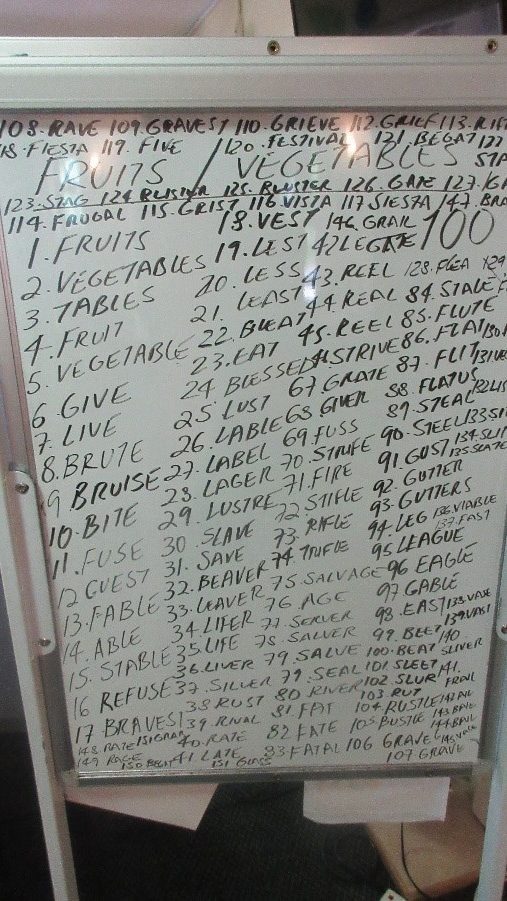 108. RAVE 109. GRAVEST 110. GRIEVE 112. GRIEF 113. RIFT
118. FIESTA 119. FIVE 120. FESTIVAL 121. BEGAT 122
STA
FRUITS / VEGETABLES
123. STAG 124. BLISTER 125. BLUSTER 126. GATE 127.
114. FRUGAL 115. GRIST 116. VISTA 117 SIESTA 147. BRA
1. FRUITS
2. VEGETABLES
3. TABLES
4. FRUIT
5. VEGETABLE
6 GIVE
7. LIVE
8. BRUTE
9 BRUISE
10. BITE
11. FUSE
12 GUEST
13. FABLE
14. ABLE
15. STABLE
16 REFUSE
17 BRAVEST
148. RATE 151 GRAN
149. RAGE
150. BEGET
18. VEST
19. LEST
20. LESS
21. LEAST
22. BLEAT
23. EAT
24 BLESSED
25. LUST
26. LABLE
27. LABEL
28. LAGER
29. LUSTRE
30. SLAVE
31. SAVE
32. BEAVER
33. LEAVER
34. LIFER
35. LIFE
36. LIVER
37. SILVER
38. RUST
39. RIVAL
40. RATE
41. LATE
151. GLASS
146. GRAIL
100
42 LEGATE
43. REEL
44. REAL
45. REEL
STRIVE
67. GRATE
68 GIVER
69. FUSS
70. STRIFE
71. FIRE
72 STIFLE
73. RIFLE
74. TRIFLE
75. SALVAGE
76 AGE
77. SERVER
78. SALVER
79. SALVE
79. SEAL
80 RIVER
81. FAT
82 FATE
83. FATAL
128. FLEA 129.
84. STALE
85. FLUTE
86. FLAT 130.
87. FLIT 131
88. FLATUS
89. STEAL 132
90. STEEL 133
91. GUST 134. SLIT
135. SLATE
92. GUTTER
93. GUTTERS
94. LEG 136. VIABLE
137. FAST
95. LEAGUE
96 EAGLE
97 GABLE
98. EAST 138. VASE
99. BEET 139. VAST
100. BEAT 140. SLIVER
101. SLEET 141.
102. SLUR FRAIL
103. RUT
104. RUSTLE 142.
105. BUSTLE 143.
106 GRAVE 144.
107. GRAVE